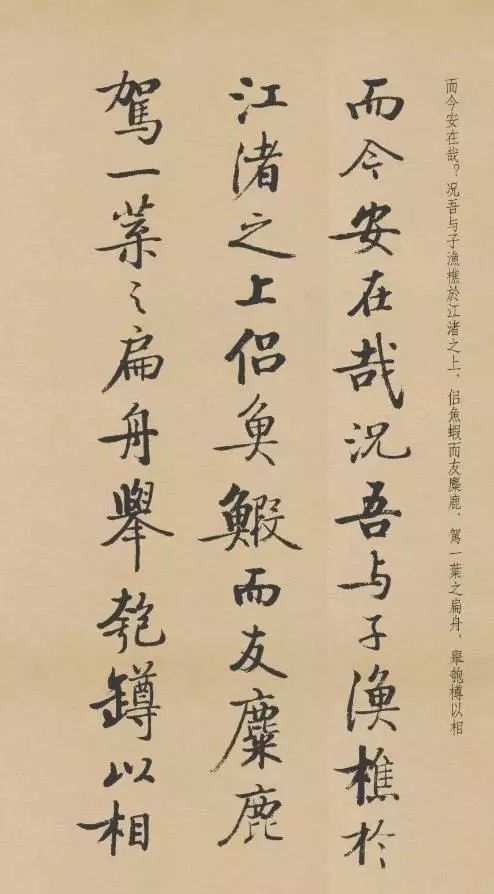 而今安在哉？况吾与子渔樵於江渚之上，侣魚蝦而友麋鹿，駕一葉之扁舟，舉匏樽以相
而今安在哉况吾与子渔樵於
江渚之上侣魚鰕而友麋鹿
駕一葉之扁舟舉匏鐏以相